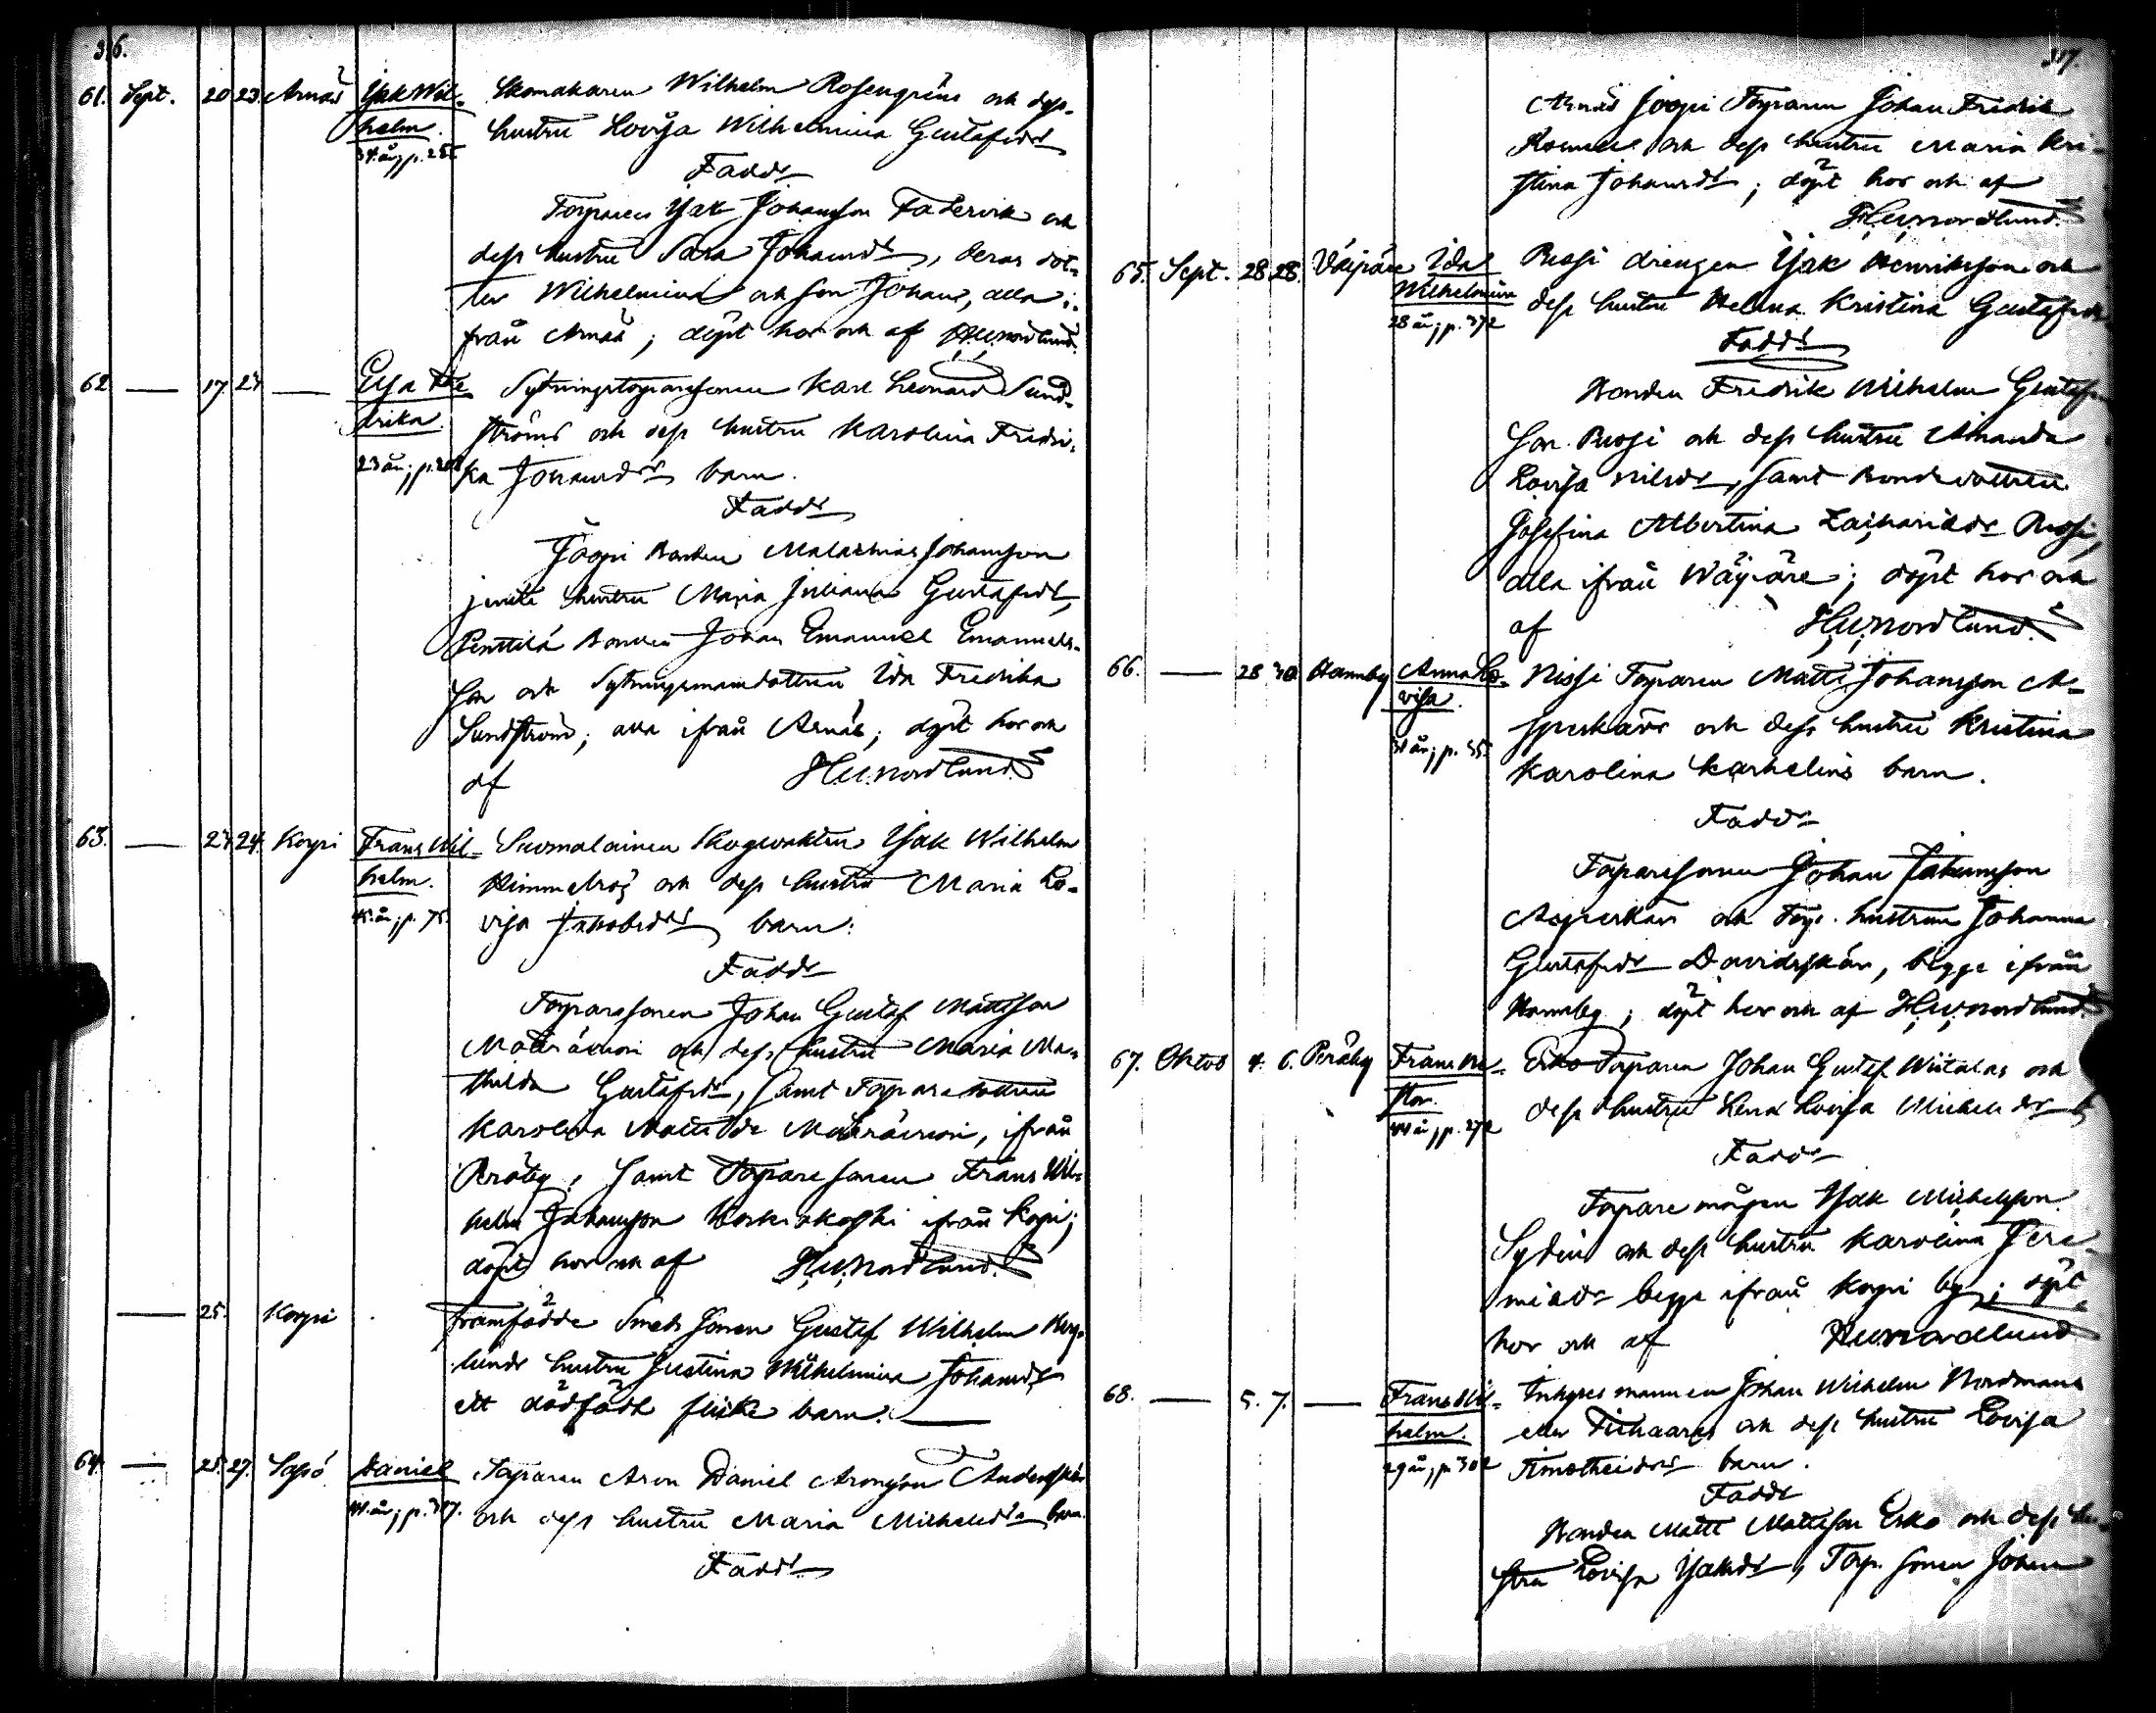 316.
61. Sept. 20 23 Arnäs Isak Wil- Skomakaren Wilhelm Rosengrens och dess
helm. hustru Lovisa Wilhelmina Gustafsdr
34 år; p. 255
Faddr
Torparen Isak Johansson Federvik och
dess hustru Sara Johansdr, deras dot-
ter Wilhelmina och son Johan, alla i-
från Arnäs; döpt hos och af HWNordlund.
62. — 17. 24. — Elsa Fre- Sytningstorparesonen Karl Leonard Sund-
drika. ströms och dess hustru Karolina Fredri-
23 år; p. ka Johansdrs barn.
Faddr
Joopi Bonden Malakias Johansson
jemte hustru Maria Juliana Gustafsdr,
Penttilä Bonden Johan Emanuel Emanuels-
son och Sytningsmansdottren Ida Fredrika
Sundström; alla ifrån Arnäs; döpt hos och
af HWNordlund
63. — 23 24. Korpi Frans Wil- Suomalainen Skogvaktren Isak Wilhelm
helm. Himmelroos och dess hustru Maria Lo-
45 år; p. 75. visa Jakobsdrs barn.
Faddr
Torparesonen Johan Gustaf Mattsson
och dess hustru Maria Ma-
thilda Gustafsdr, samt Torparedottren
Karolina Mathilda ifrån
Peråby, samt Torparesonen Frans Wil-
helm Johansson Koskiskoski ifrån Korpi;
döpt hos och af HWNordlund.
— 25. Korpi framfödde Smeds Sonen Gustaf Wilhelm
lunds hustru Justina Wilhelmina Johansdr
ett dödfödt flicke barn. —
64. — 25. 27. Sapö Daniel Torparen Aron Daniel Aronsson Anderskärs
44 år; p. 317. och dess hustru Maria Michelsdrs barn.
Faddr
317.
Arnäs Joopi Torparen Johan Fredrik
och dess hustru Maria Kri-
stina Johansdr; döpt hos och af
HWNordlund.
65. Sept. 28 28. Väipäre Ida Ruosi drengen Isak Henriksson och
Wilhelmina dess hustru Helena Kristina Gustafsdr
28 år; p. 372
Faddr
Bonden Fredrik Wilhelm Gustafs-
son Ruosi och dess hustru Amanda
Lovisa Nilsdr, samt Bondedottren
Josefina Albertina Zachariædr Ruosi,
alla ifrån Wäipäre; döpt hos och
af HWNordlund.
66. — 28 30. Hannby Anna Lo- Nissi Torparen Matts Johansson A-
visa. spskärs och dess hustru Kristina
31 år; p. 35 Karolina Karhelins barn.
Faddr
Torparesonen Johan Johansson
Aspskär och Torp. hustrun Johanna
Gustafsdr Davidsskär, begge ifrån
Hannby; döpt hos och af HWNordlund
67. Oktob 4. 6. Peråby Frans Ne- Erko Torparen Johan Gustaf Wiitalas och
stor. dess hustru Lena Lovisa Michelsdrs b.
44 år; p. 272
Faddr
Torpare mågen Isak Michelsson
Sydin och dess hustru Karolina Jere-
miædr begge ifrån Korpi by; döpt
hos och af HWNordlund
68. — 5. 7. — Frans Wil- Inhyses mannen Johan Wilhelm Nordmans
helm. eller och dess hustru Lovisa
29 år; p. 302 Timotheidrs barn.
Faddr
Bonden Matts Mattsson Erko och dess hu-
stru Lovisa Isaksdr, Torp. Sonen Johan